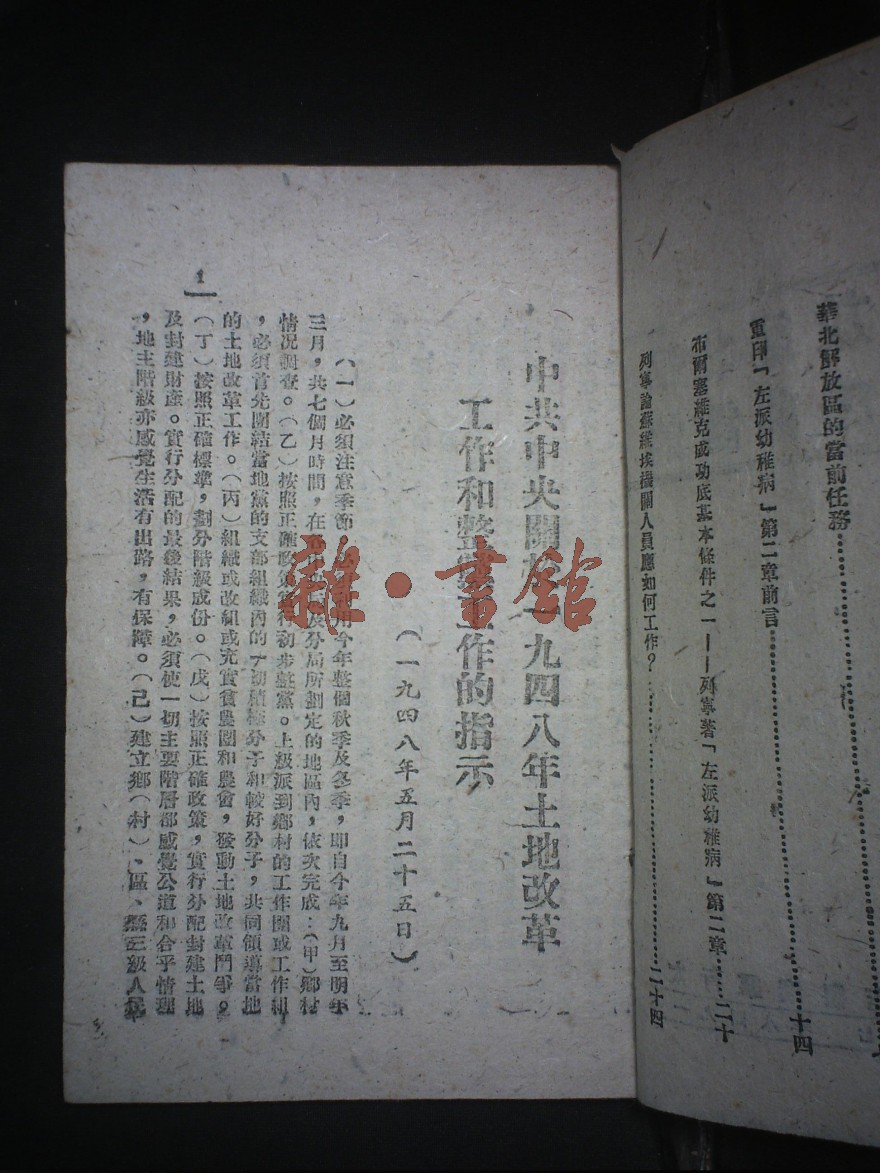 華北解放區的當前任務
重印「左派幼稚病」第二章前言 十四
布爾塞維克成功底基本條件之一——列寧著「左派幼稚病」第二章 二十
列寧論蘇維埃機關人員應如何工作? 二十四
中共中央關於一九四八年土地改革
工作和整黨工作的指示
(一九四八年五月二十五日)
(一)必須注意季節 用今年整個秋季及冬季,即自今年九月至明年
三月,共七個月時間,在 及分局所劃定的地區內,依次完成:(甲)鄉村
情况調查。(乙)按照正確政策實行初步整黨。上級派到鄉村的工作團或工作組
,必須首先團結當地黨的支部組織內的一切積極分子和較好分子,共同領導當地
的土地改革工作。(丙)組織或改組或充實貧農團和農會,發動土地改革鬥爭。
(丁)按照正確標準,劃分階級成份。(戊)按照正確政策,實行分配封建土地
及封建財產。實行分配的最後結果,必須使一切主要階層都感覺公道和合乎情理
,地主階級亦感覺生活有出路,有保障。(己)建立鄉(村)、區、縣三級人民
1
雜·書館